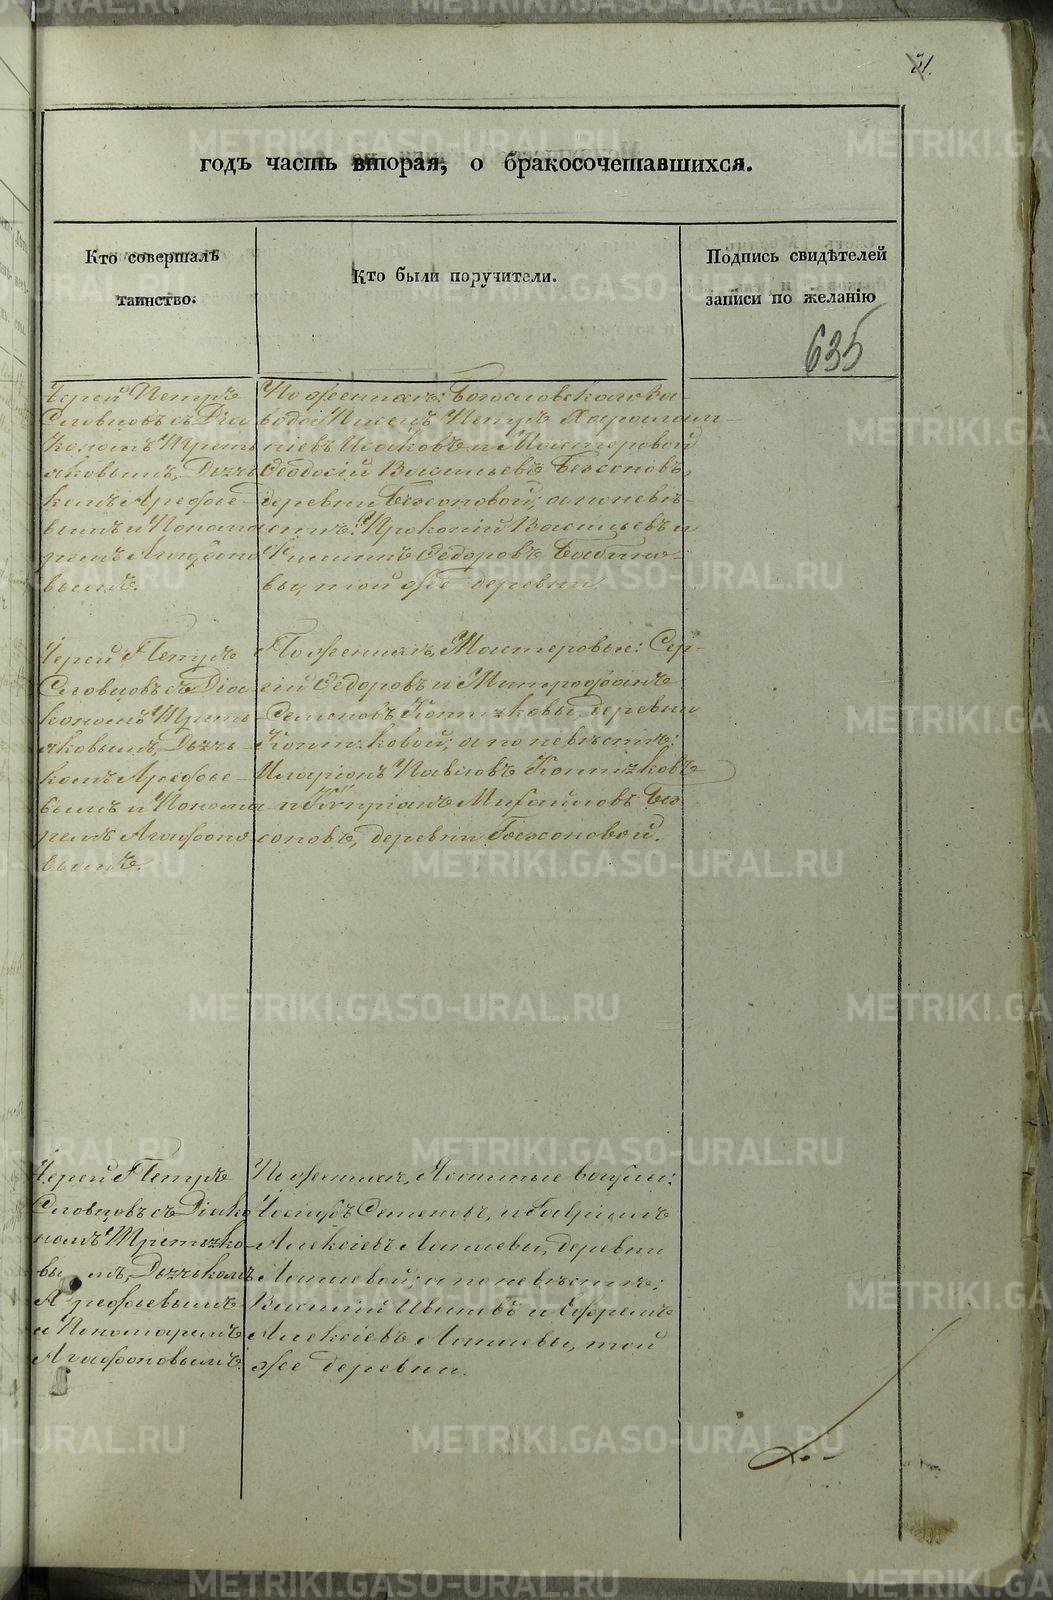 годъ часть вторая, о бракосочетавшихся.
Кто совершалъ
таинство.
Кто были поручители.
Подпись свидѣтелей
записи по желанію
635
Іерей Петръ
Словцовъ съ Діа
кономъ Треть
яковымъ, Дьяч
комъ Арефье-
вымъ и Понома
ремъ Агафоно
вымъ.
По женихѣ: Богословскаго За-
вода Писецъ Петръ
Исаковъ и Мастеровой
Ѳеодосій Васильевъ Безсоновъ,
деревни Безсоновой; а по невѣ-
стѣ: Прокопій Васильевъ и
Ѳедоровъ
вы, той же деревни.
Іерей Петръ
Словцовъ съ Діа-
кономъ Треть-
яковымъ, Дьяч-
комъ Арефье-
вымъ и Понома
ремъ Агафоно
вымъ.
По женихѣ, Мастеровые: Сер-
гій Ѳедоровъ и Митрофанъ
Семеновъ Коптяковы, деревни
Коптяковой; а по невѣстѣ:
Иларіонъ Павловъ Коптяковъ
и Кипріанъ Михайловъ Без
соновъ, деревни Безсоновой.
Іерей Петръ
Словцовъ съ Діако
номъ Третьяко-
вымъ, Дьячкомъ
Арефьевымъ
и Пономаремъ
Агафоновымъ.
По женихѣ, Ясашные вогулы:
Іосифъ Семеновъ, и Гавріилъ
Алексіевъ Лапаевы, деревни
Лапаевой; а по невѣстѣ:
Василій и Ефремъ
Алексіевъ Лапаевы, той
же деревни.
METRIKI.GASO-URAL.RU